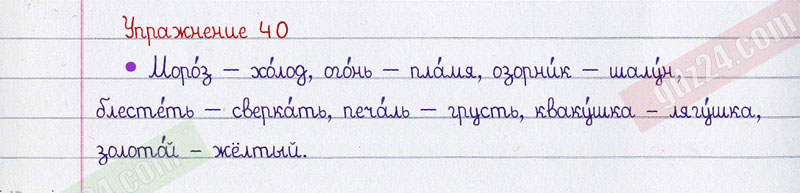 Упражнение 40
• Моро́з – хо́лод, ого́нь – пла́мя, озорни́к – шалу́н,
блесте́ть – сверка́ть, печа́ль – грусть, кваку́шка – лягу́шка,
золото́й – жёлтый.
gdz24.com